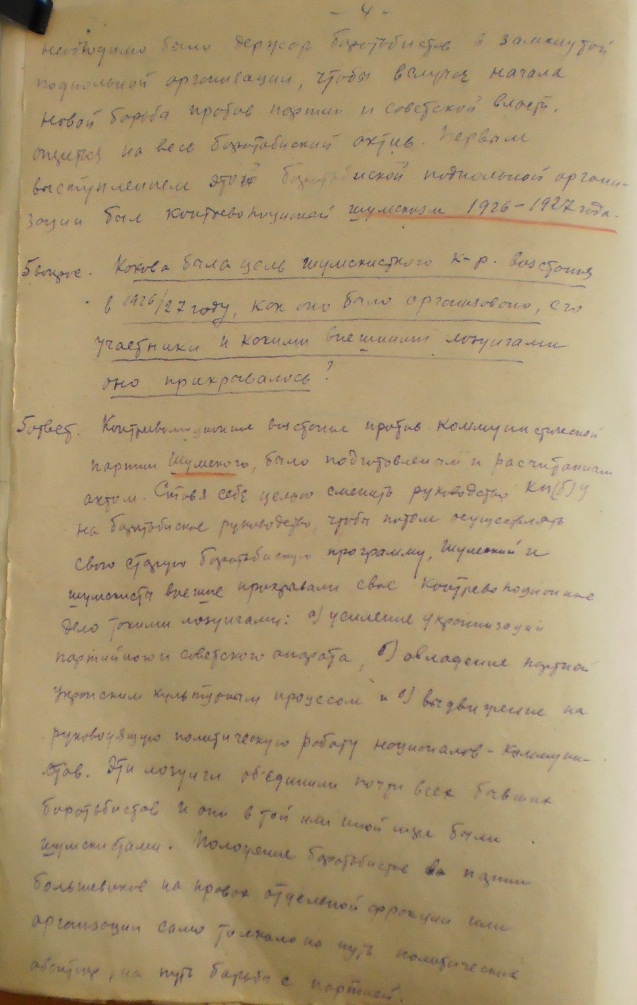 - 4 -
необходимо было держать боротьбистов в замкнутой
подпольной организации, чтобы в случае начала
новой борьбы против партии и советской власти,
на весь боротьбиский актив. Первым
выступлением этой боротьбиской подпольной органи-
зации был контрреволюционный шумскизм 1926-1927 года.
5 вопрос. Какова была цель шумскистского к-р. восстания
в 1926/27 году, как оно было организовано, его
участники и какими внешними лозунгами
оно прикрывалось?
5 ответ. Контрреволюционное восстание против коммунистической
партии Шумского, было подготовленным и расчитанным
актом. Ставя себе целью сменить руководство КП(б)У
на боротьбиское руководство, чтобы потом осуществлять
свою старую боротьбискую программу, Шумский и
шумскисты внешне прикрывали свое контрреволюционное
дело такими лозунгами: а) усиление украинизации
партийного и советского апарата, б) овладение партией
украинским культурным процессом и в) выдвижение на
руководящую политическую работу националов-коммуни-
стов. Эти лозунги об'единили почти всех бывших
боротьбистов и они в той или иной мере были
шумскистами. Положение боротьбистов в партии
большевиков на правах отделеной фракции или
организации само толкало на путь политических
авантюр, на путь борьбы с партией.